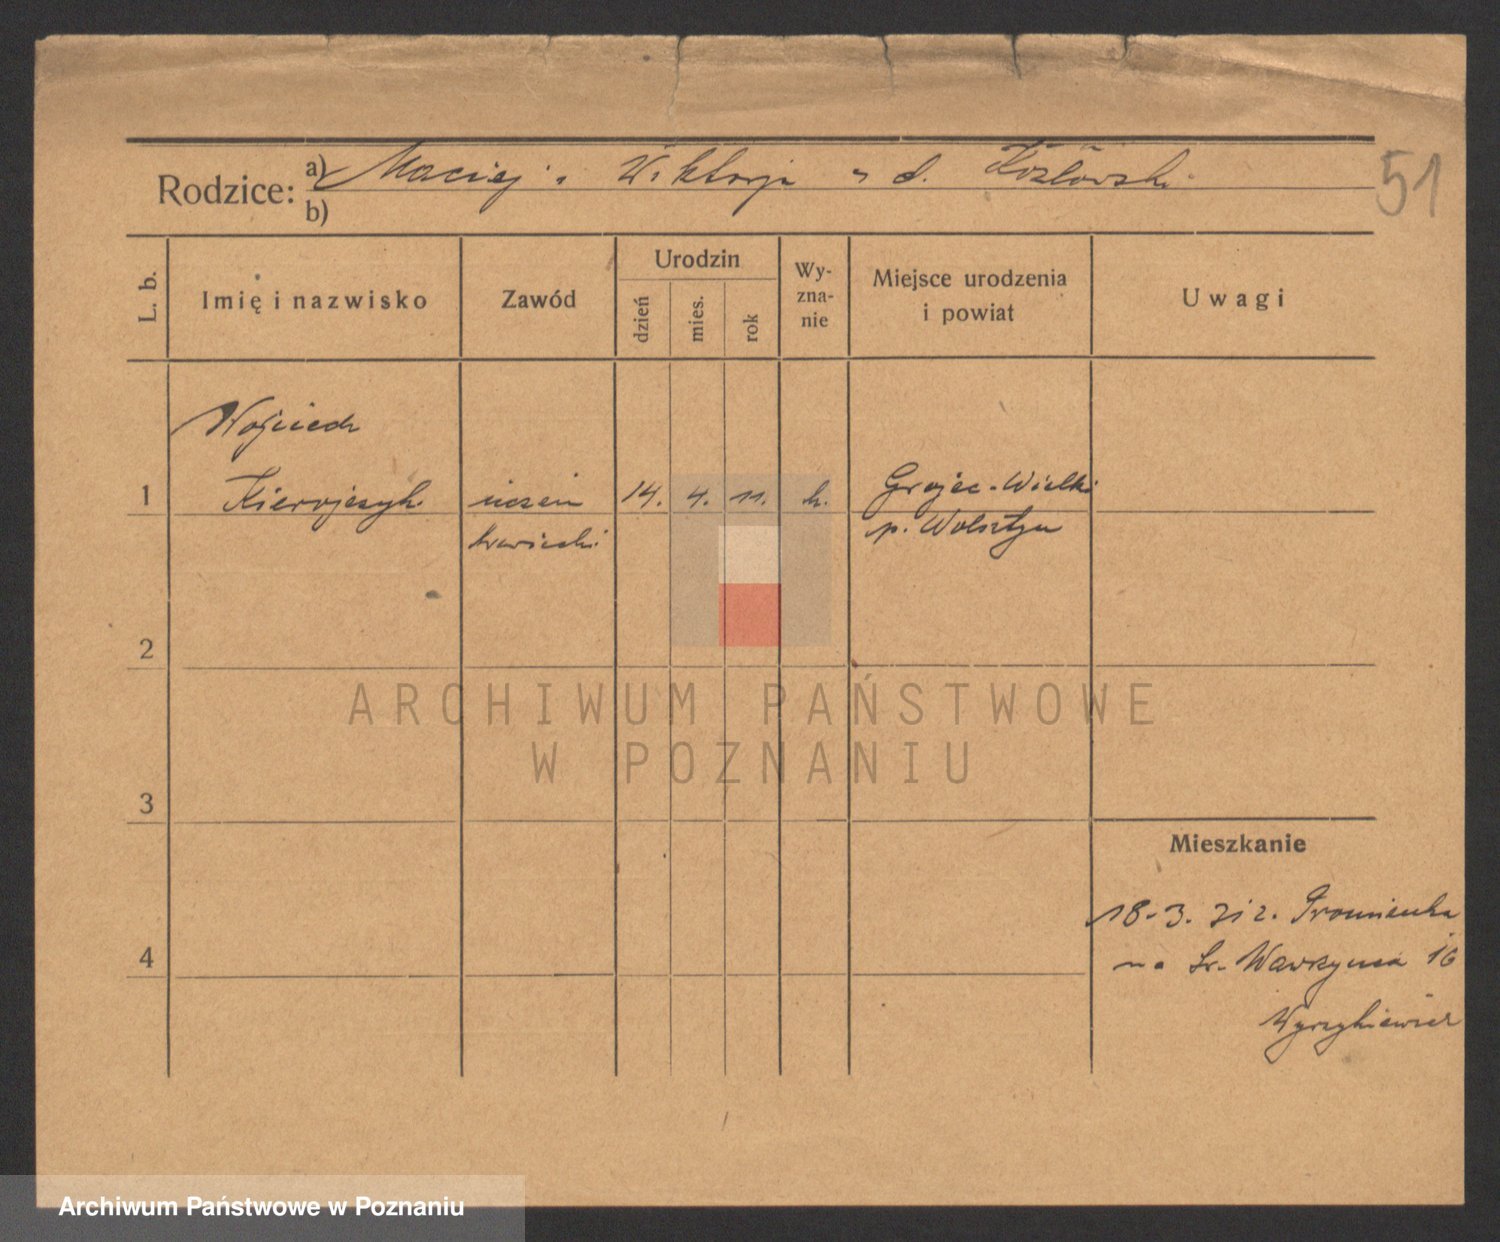 Rodzice:
a) Maciej i Wiktorja z d. Kozłowski
b)
51
L. b.
Imię i nazwisko
Zawód
Urodzin
dzień
mies.
rok
Wy-
zna-
nie
Miejsce urodzenia
i powiat
Uwagi
Wojciech
1
uczeń
14. 4. 11. k.
Grojec-Wielki
krawiecki
p. Wolsztyn
2
ARCHIWUM PAŃSTWOWE
W POZNANIU
3
Mieszkanie
18-3. 31 z
na Św. Wawrzyńca 16
4
Archiwum Państwowe w Poznaniu